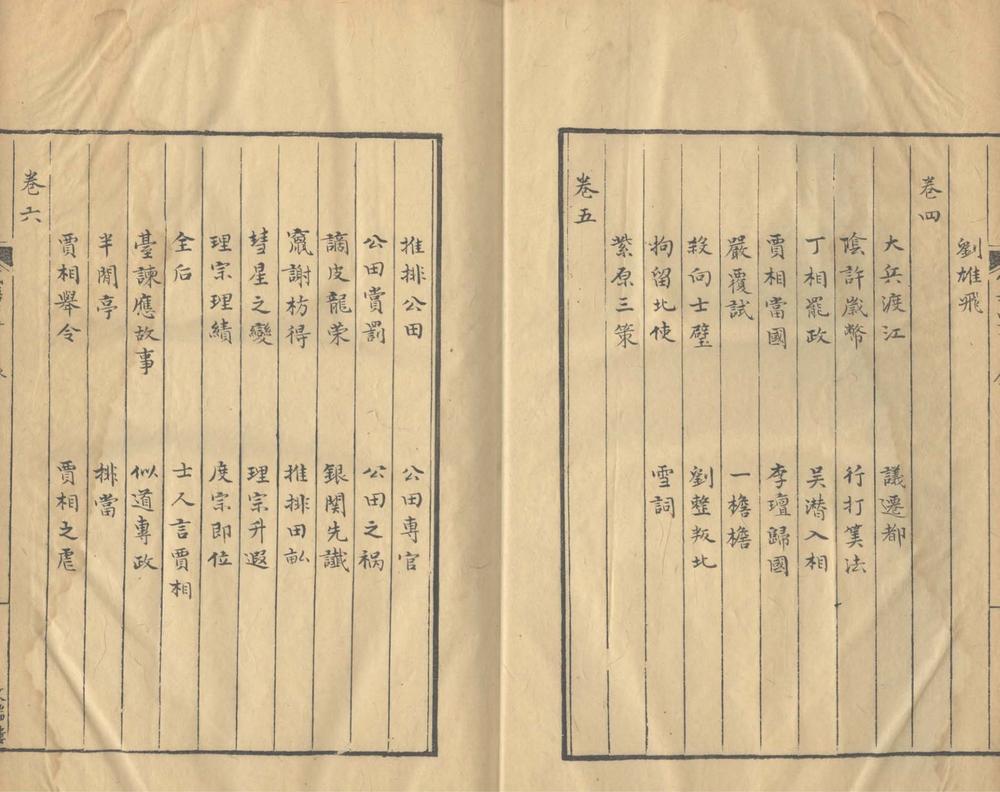 劉雄飛
卷四
大兵渡江 議遷都
陰許歲幣 行打筭法
丁相罷政 吴潛入相
賈相當國 李璮歸國
嚴覆試 一檐檐
殺向士璧 劉整叛北
拘留北使 雪詞
紫原三策
卷五
推排公田 公田專官
公田賞罰 公田之禍
謫皮龍荣 銀関先讖
竄謝枋得 推排田畝
彗星之變 理宗升遐
理宗理績 度宗即位
全后 士人言賈相
臺諫應故事 似道專政
半閒亭 排當
賈相舉令 賈相之虐
卷六